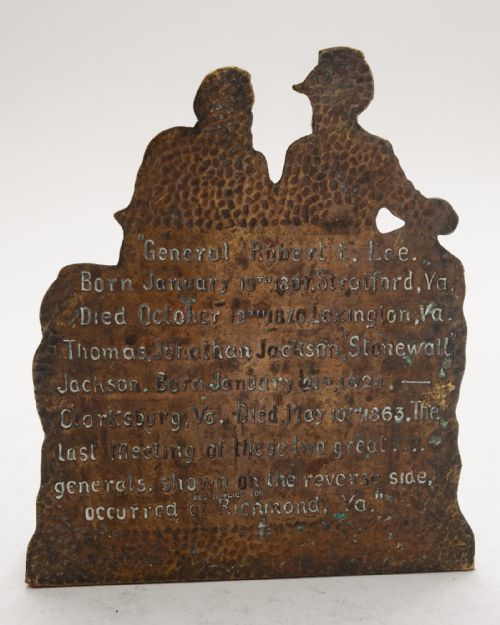 "General Robert E. Lee.
Born January 19TH 1807, Stratford, Va.
Died October 12TH 1870, Lexington, Va.
"Thomas, Jonathan Jackson, Stonewall"
Jackson. Born January 21st, 1824, —
Clarksburg, Va. Died, May 10TH 1863. The
last Meeting of these two great....
generals, shown on the reverse side,
REG. APPLIED FOR
occurred at Richmond, Va."